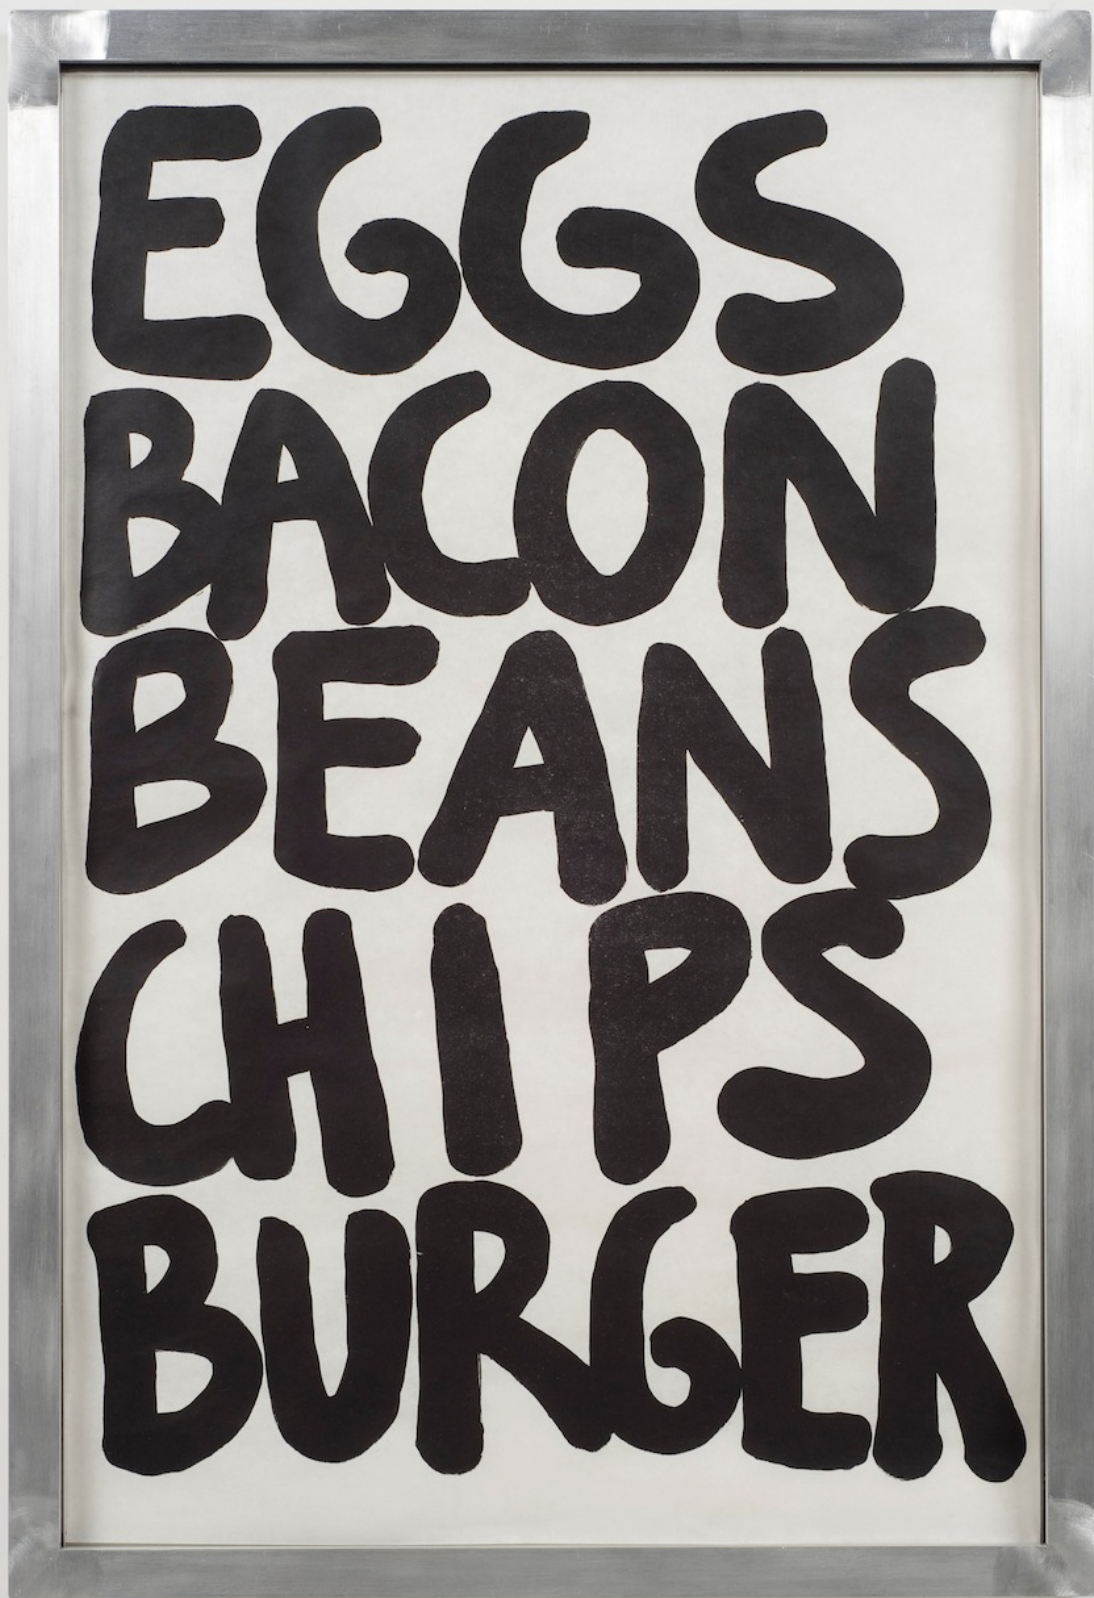 EGGS
BACON
BEANS
CHIPS
BURGER